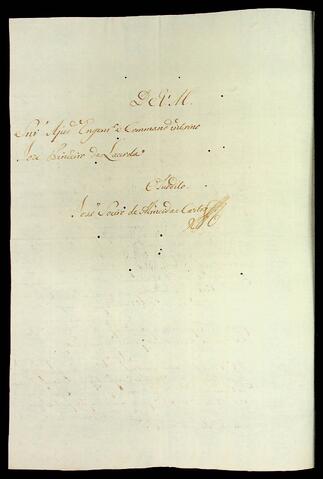 D. V. M.
Snr. Ajud. Engenr. e Commande interino
Joze Pinheiro de Lacerda
Subdito
Joze Pedro de Almeida e Castro